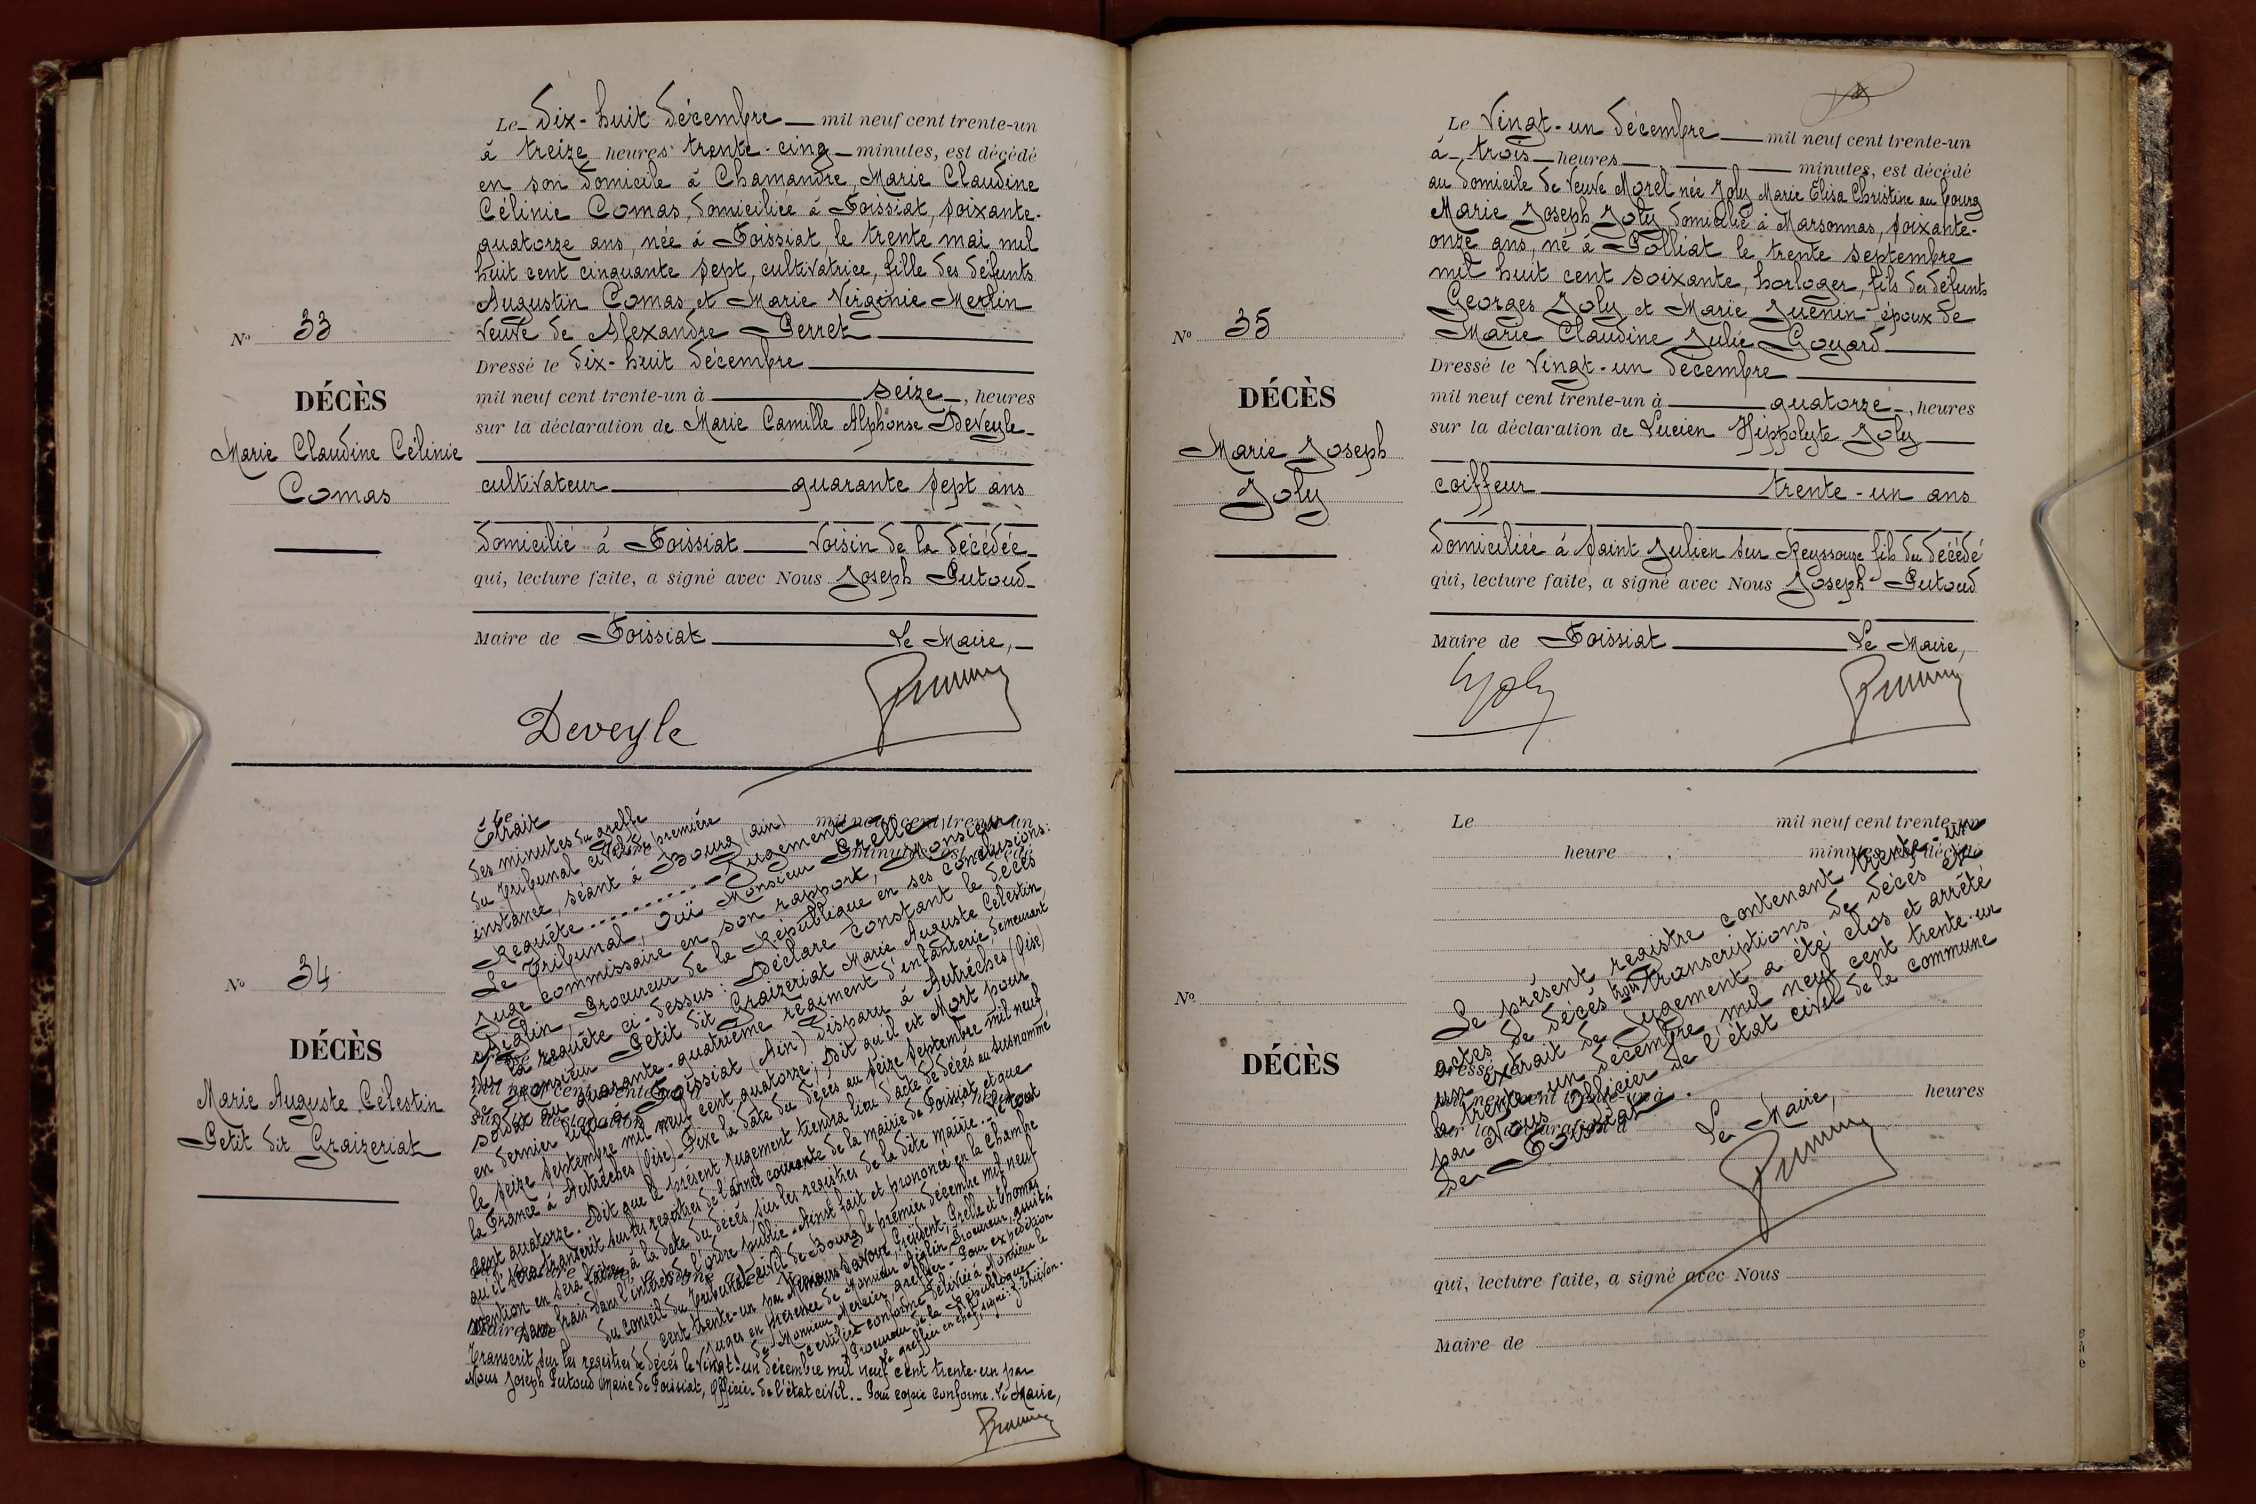 Le dix-huit décembre mil neuf cent trente-un
à treize heures trente-cinq minutes, est décédé
en son domicile à Chamandre, Marie Claudine
Célinie Comas, domiciliée à Foissiat, soixante-
quatorze ans, née à Foissiat le trente mai mil
huit cent cinquante sept, cultivatrice, fille des défunts
Augustin Comas et Marie Virginie Merlin
veuve de Alexandre Perret
Dressé le dix-huit décembre
mil neuf cent trente-un à seize, heures
sur la déclaration de Marie Camille Alphonse Deveyle
cultivateur quarante sept ans
domicilié à Foissiat voisin de la décédée
qui, lecture faite, a signé avec Nous Joseph Putoud
Maire de Foissiat Le Maire,
Deveyle
No 33
DÉCÈS
Marie Claudine Célinie
Comas
No 34
DÉCÈS
Marie Auguste Célestin
Petit dit Graizeriat
Extrait
des minutes du greffe
du Tribunal civil de première
instance, séant à Bourg (Ain)
Requête Jugement
Le Tribunal, Ouï Monsieur Grelle,
Juge commissaire en son rapport, Monsieur
Réglin, Procureur de la République en ses conclusions:
Vu la requête ci-dessus: Déclare constant le décès
de Monsieur Petit dit Graizeriat Marie Auguste Célestin
soldat au quarante-quatrième régiment d'infanterie, demeurant
en dernier lieu à Foissiat (Ain) disparu à Autrèches (Oise)
le seize septembre mil neuf cent quatorze, Dit qu'il est Mort pour
la France à Autrèches (Oise) Fixe la date du décès au seize septembre mil neuf
cent quatorze. Dit que le présent jugement tiendra lieu d'acte de décès au susnommé
qu'il sera transcrit sur les registres de l'année courante de la mairie de Foissiat et que
mention en sera faite à la date du décès, sur les registres de la dite mairie. Le tout
sans frais dans l'intérêt de l'ordre public. Ainsi fait et prononcé en la Chambre
du conseil du Tribunal civil de Bourg le premier décembre mil neuf
cent trente-un par Président, Grelle et Thomas
juges en présence de Monsieur Réglin Procureur, assisté
de Monsieur Mercier, greffier - Pour expédition
certifiée conforme délivrée à Monsieur le
Procureur de la République
Le greffier en chef, signé:
Transcrit sur les registres de décès le vingt-un décembre mil neuf cent trente-un par
Nous Joseph Putoud Maire de Foissiat, officier de l'état civil. Pour copie conforme. Le Maire,
Le Vingt-un décembre mil neuf cent trente-un
à trois heures minutes, est décédé
au domicile de Veuve Morel née Joly Marie Élisa Christine au bourg
Marie Joseph Joly domicilié à Marsonnas, soixante-
onze ans, né à Polliat le trente septembre
mil huit cent soixante, horloger, fils des défunts
Georges Joly et Marie Juenin époux de
Marie Claudine Julie Goyard
Dressé le vingt-un décembre
mil neuf cent trente-un à quatorze, heures
sur la déclaration de Lucien Hippolyte Joly
coiffeur trente-un ans
domiciliée à Saint Julien sur Reyssouze fils du décédé
qui, lecture faite, a signé avec Nous Joseph Putoud
Maire de Foissiat Le Maire,
Joly
No 35
DÉCÈS
Marie Joseph
Joly
Le mil neuf cent trente-un
heure minutes, est décédé
No
DÉCÈS
Le présent registre contenant trente-un
actes de décès trois transcriptions de décès et
un extrait de Jugement a été clos et arrêté
le trente-un décembre mil neuf cent trente-un
par Nous Officier de l'état civil de la commune
de Foissiat
Le Maire,
Dressé le
mil neuf cent trente-un à heures
sur la déclaration d
qui, lecture faite, a signé avec Nous
Maire de